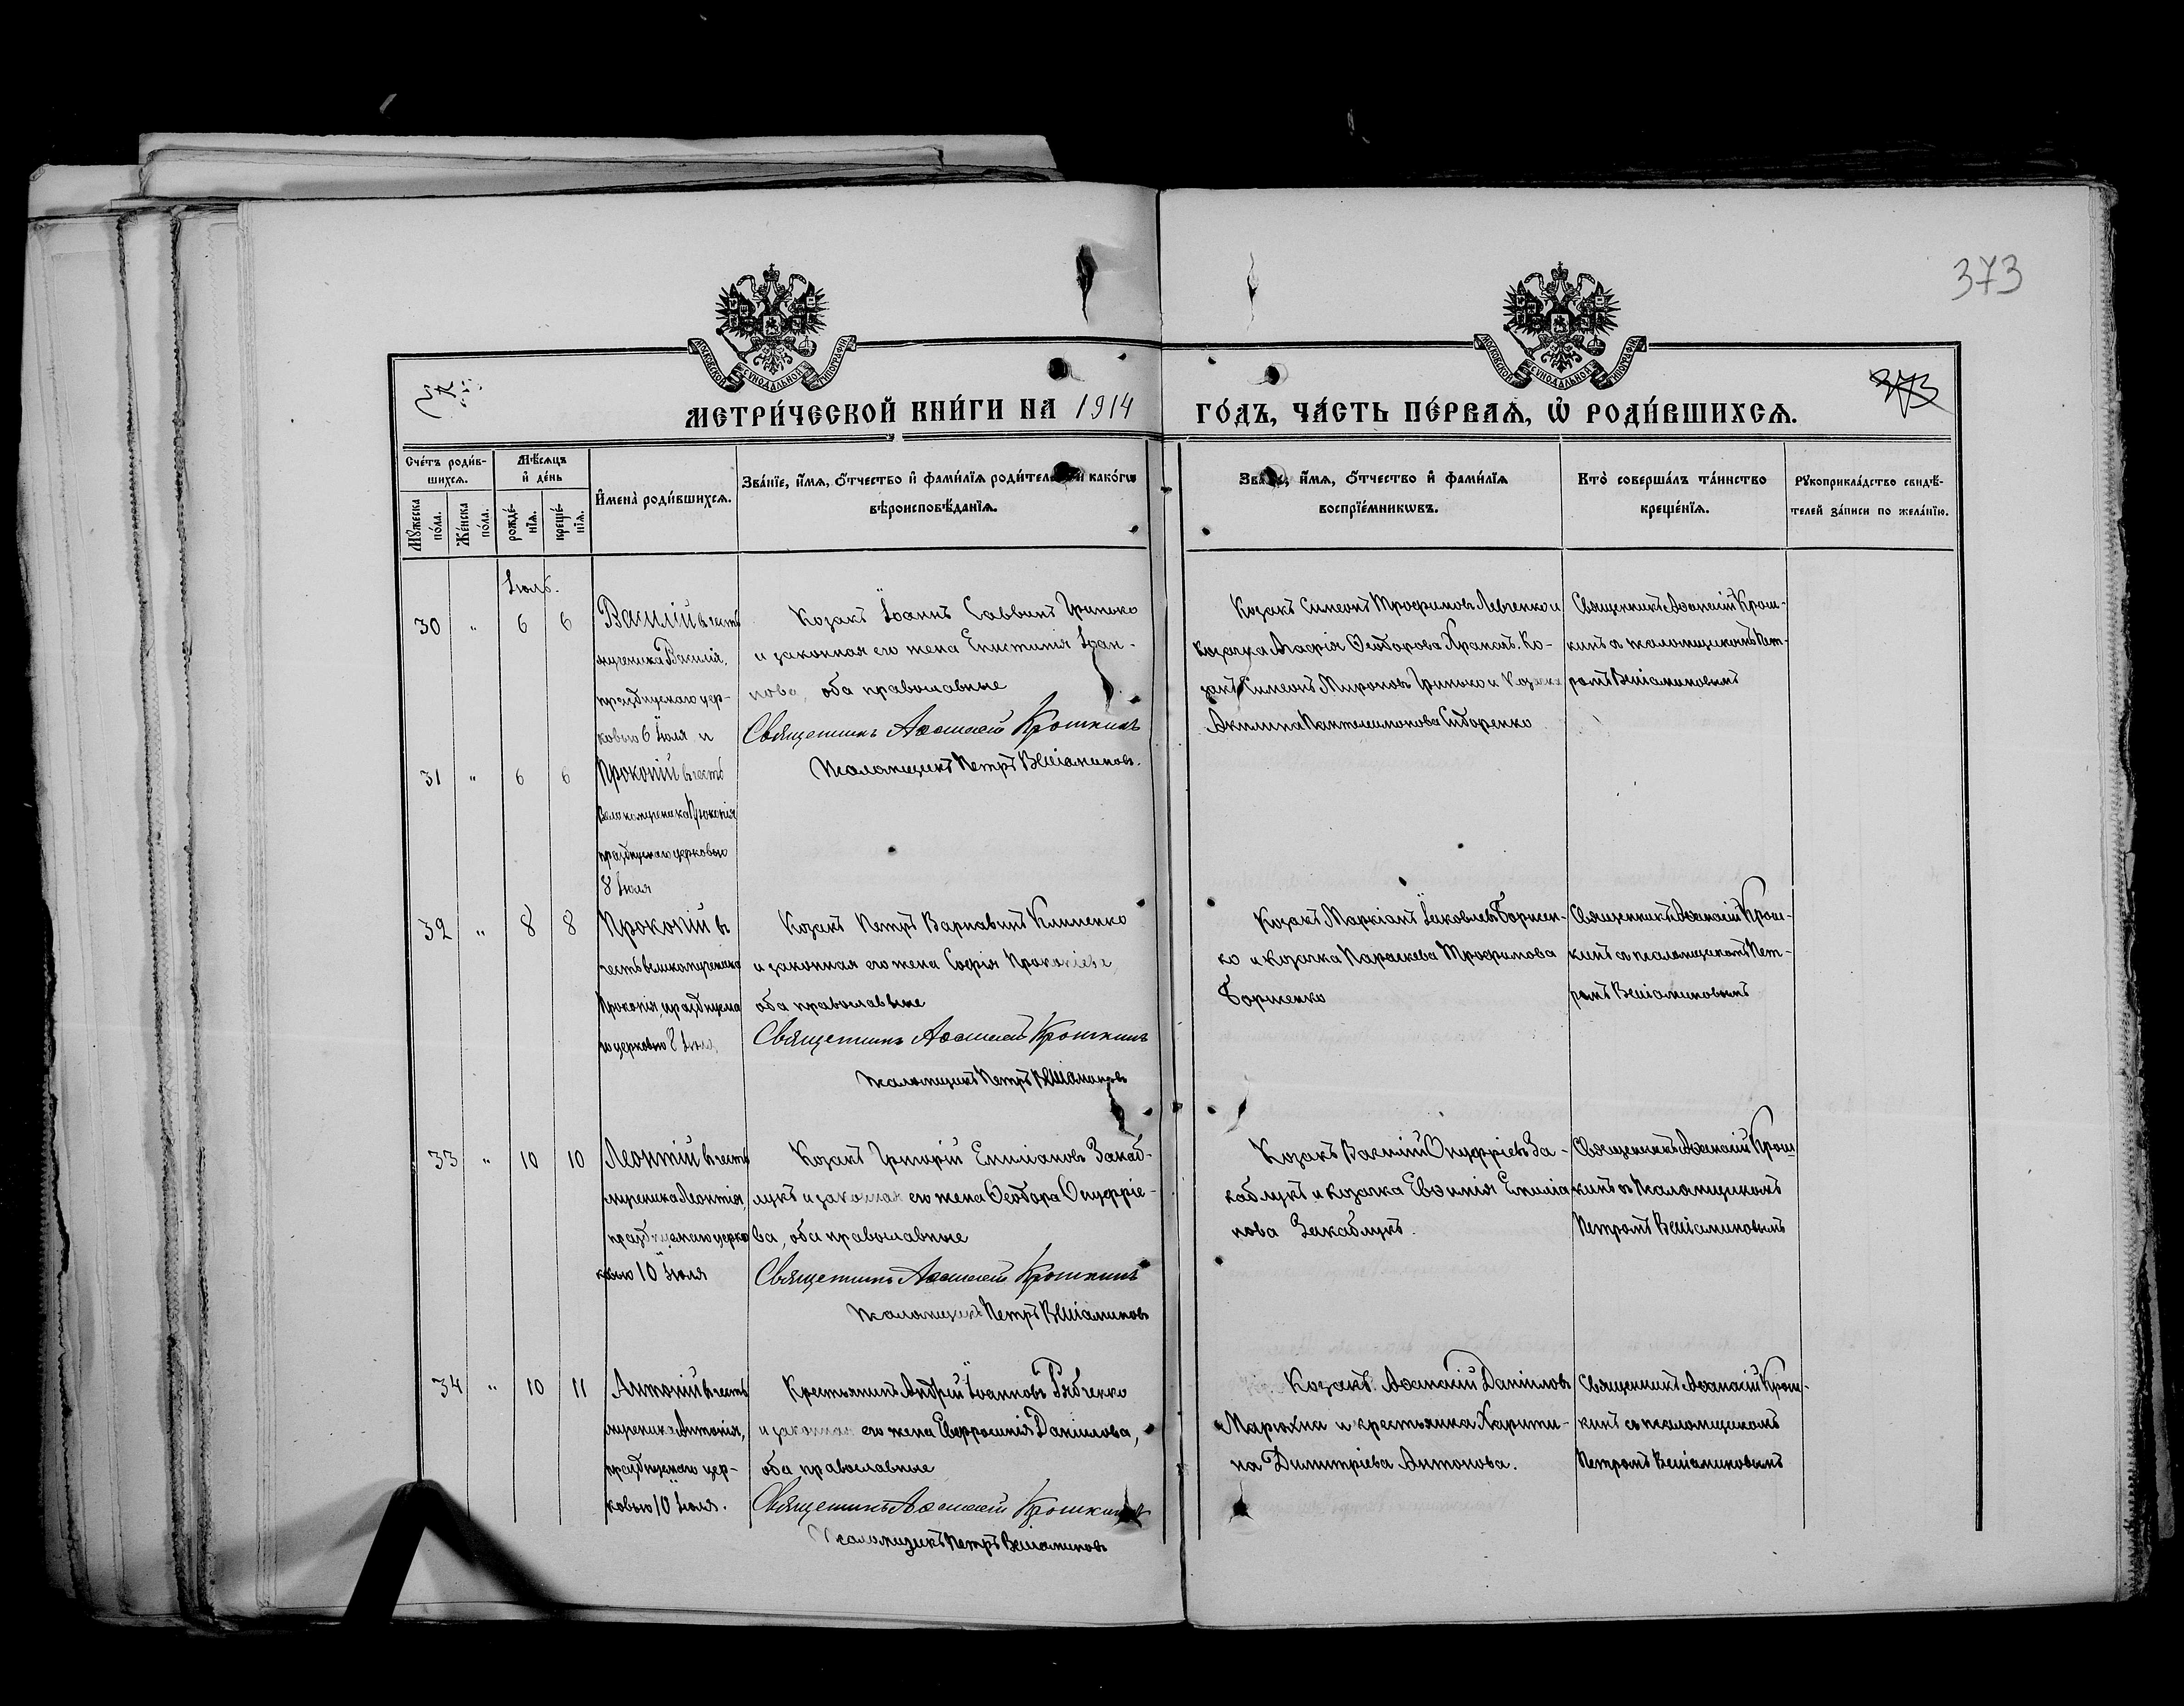 373
373
МЕТРИ́ЧЕСКОЙ КНИ́ГИ НА 1914 ГО́ДЪ, ЧА́СТЬ ПЕ́РВАѦ, Ѡ҆ РОДИ́ВШИХСѦ.
Сче́тъ роди́в-
шихсѧ.
Мꙋ́жеска
по́ла.
Же́нска
по́ла.
Мѣ́сѧцъ
и҆ де́нь
рожде́-
нїѧ.
креще́-
нїѧ.
И҆мена̀ роди́вшихсѧ.
Зва́нїе, и҆́мѧ, ѻ҆́тчество и҆ фами́лїѧ роди́телей и како́гѡ
вѣроисповѣ́данїѧ.
Зва́нїе, и҆́мѧ, ѻ҆́тчество и҆ фами́лїѧ
воспрїе́мникѡвъ.
Кто̀ соверша́лъ та́инство
креще́нїѧ.
Рꙋкоприкла́дство свидѣ́-
телей за́писи по жела́нїю.
Іюль.
30 " 6 6
Василій въ честь
мученика Василія,
празднуемаго цер-
ковью 6 Іюля и
Козакъ Іоаннъ Саввинъ Гринько
и законная его жена Епистимія Іоан-
нова, оба православные
Священникъ Аѳанасій Крошкинъ
Псаломщикъ Петръ Веніаминовъ.
Козакъ Симеонъ Трофимовъ Левченко и
козачка Агафія Ѳеодорова Храпаль. Ко-
закъ Симеонъ Мироновъ Гринько и Козачка
Акилина Пантелеимонова Сидоренко
Священникъ Аѳанасій Крош-
кинъ съ псаломщикомъ Пет-
ромъ Веніаминовымъ
31 " 6 6
Прокопій въ честь
Великомученика Прокопія
празднуемаго церковью
8 Іюля
32 " 8 8
Прокопій въ
честь великомученика
Прокопія, празднуема
го церковью 8 Іюля
Козакъ Петръ Варнавинъ Клименко
и законная его жена Софія Прокопіева,
оба православные
Священникъ Аѳанасій Крошкинъ
Псаломщикъ Петръ Веніаминовъ
Козакъ Маркіанъ Іаковлевъ Боршен-
ко и Козачка Параскева Трофимова
Боршенко
Священникъ Аѳанасій Крош-
кинъ съ псаломщикомъ Пет-
ромъ Веніаминовымъ
33 " 10 10
Леонтій въ честь
мученика Леонтія,
празднуемаго церко
вью 10 Іюля
Козакъ Григорій Емиліановъ Закаб-
лукъ и законная его жена Ѳеодора Онуфріе-
ва, оба православные
Священникъ Аѳанасій Крошкинъ
Псаломщикъ Петръ Веніаминовъ
Козакъ Василій Онуфріевъ За-
каблукъ и козачка Евѳимія Емиліа
нова Закаблукъ.
Священникъ Аѳанасій Крош
кинъ съ Псаломщикомъ
Петромъ Веніаминовымъ
34 " 10 11
Антоній въ честь
мученика Антонія,
празднуемаго цер-
ковью 10 Іюля.
Крестьянинъ Андрей Іоанновъ Рябченко
и законная его жена Евфросинія Даніилова,
оба православные
Священникъ Аѳанасій Крошкинъ
Псаломщикъ Петръ Веніаминовъ
Козакъ Аѳанасій Даніиловъ
Марюхна и крестьянка Харити-
на Димитріева Антонова.
Священникъ Аѳанасій Крош-
кинъ съ псаломщикомъ
Петромъ Веніаминовымъ